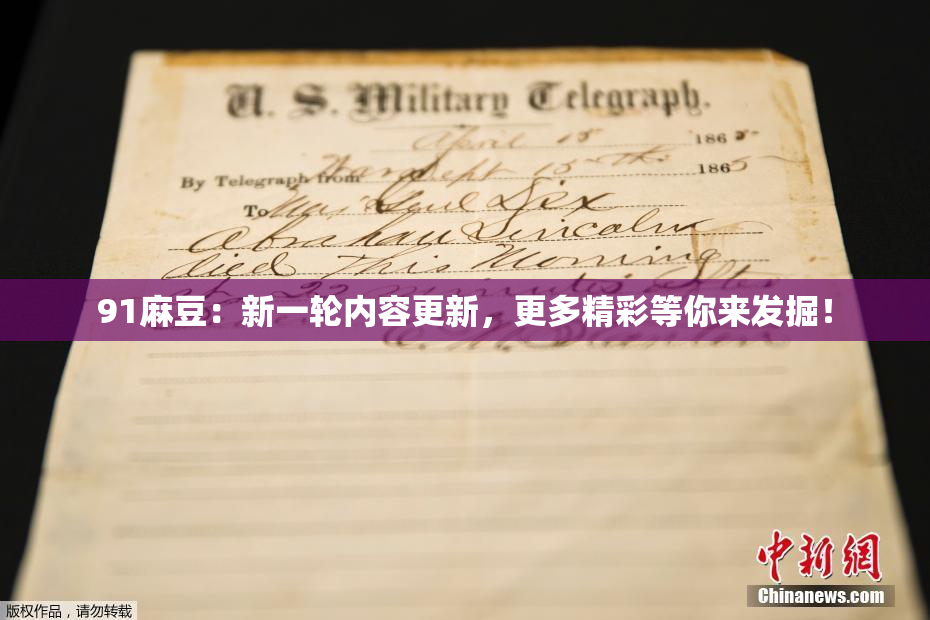 U. S. Military Telegraph.
April 15 1865
By Telegraph from War Dept 15th 1865
To Maj Genl Dix
Abraham Lincoln
died This Morning
at 22 minutes after
91麻豆：新一轮内容更新，更多精彩等你来发掘！
E. M. Stanton
中新网
Chinanews.com
版权作品，请勿转载